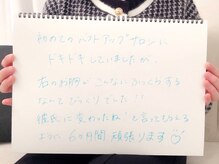 初めてのバストアップサロンに
ドキドキしていましたが、
右のお胸がこんなにふっくらする
なんてびっくりでした!!
彼氏に変わったね♡と言ってもらえる
ように6ヶ月間頑張ります♡